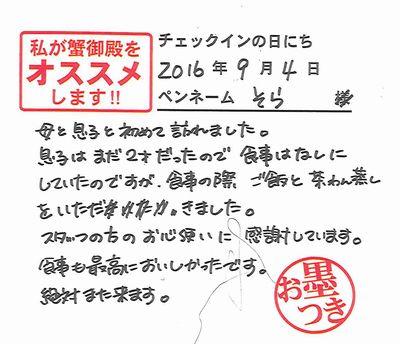 私が蟹御殿を
オススメ
します!!
チェックインの日にち
2016 年 9 月 4 日
ペンネーム そら 様
母と息子と初めて訪れました。
息子はまだ2才だったので食事はなしに
していたのですが、食事の際 ご飯と茶わん蒸し
をいただきました。
スタッフの方のお心遣いに感謝しています。
食事も最高においしかったです。
絶対また来ます。
お墨つき